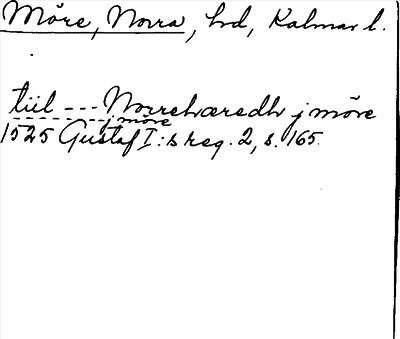 Möre, Norra, hrd, Kalmar l.
tiil --- Norrehæredh j möre
j möre
1525 Gustaf I:s reg. 2, s. 165.